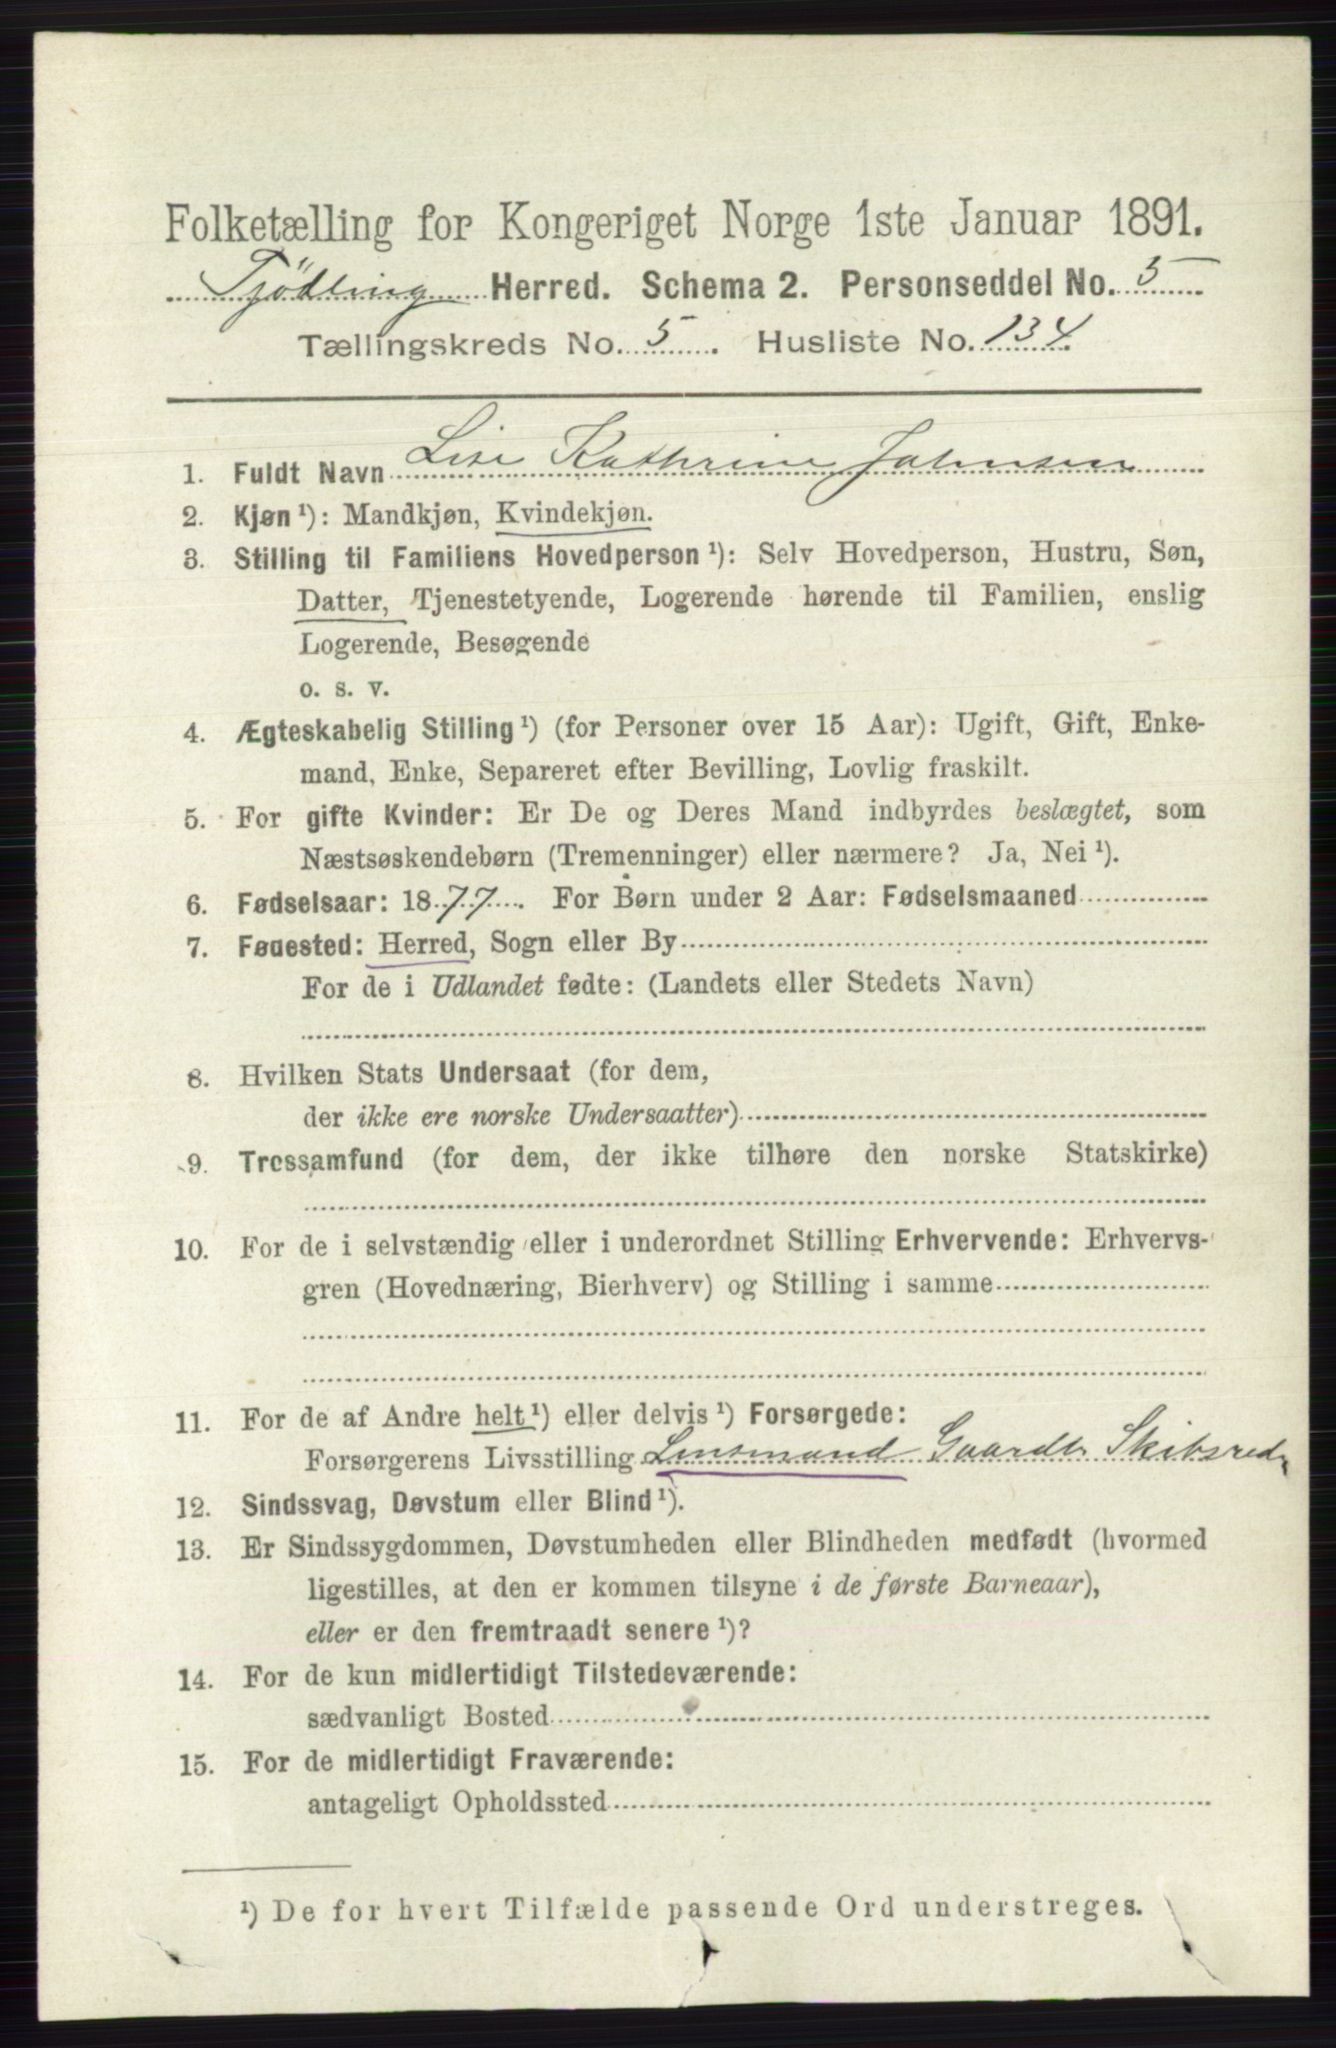 Folketælling for Kongeriget Norge 1ste Januar 1891.
Tjödling Herred. Schema 2. Personseddel No. 5
Tællingskreds No. 5. Husliste No. 134.
1. Fuldt Navn Lise Kathrine Johnsen
2. Kjøn ¹): Mandkjøn, Kvindekjøn.
3. Stilling til Familiens Hovedperson ¹): Selv Hovedperson, Hustru, Søn,
Datter, Tjenestetyende, Logerende hørende til Familien, enslig
Logerende, Besøgende
o. s. v.
4. Ægteskabelig Stilling ¹) (for Personer over 15 Aar): Ugift, Gift, Enke-
mand, Enke, Separeret efter Bevilling, Lovlig fraskilt.
5. For gifte Kvinder: Er De og Deres Mand indbyrdes beslægtet, som
Næstsøskendebørn (Tremenninger) eller nærmere? Ja, Nei ¹).
6. Fødselsaar: 1877. For Børn under 2 Aar: Fødselsmaaned
7. Fødested: Herred, Sogn eller By
For de i Udlandet fødte: (Landets eller Stedets Navn)
8. Hvilken Stats Undersaat (for dem,
der ikke ere norske Undersaatter)
9. Trossamfund (for dem, der ikke tilhøre den norske Statskirke)
10. For de i selvstændig eller i underordnet Stilling Erhvervende: Erhvervs-
gren (Hovednæring, Bierhverv) og Stilling i samme
11. For de af Andre helt ¹) eller delvis ¹) Forsørgede:
Forsørgerens Livsstilling Lensmand Gaardbr Skibsred.
12. Sindssvag, Døvstum eller Blind ¹).
13. Er Sindssygdommen, Døvstumheden eller Blindheden medfødt (hvormed
ligestilles, at den er kommen tilsyne i de første Barneaar),
eller er den fremtraadt senere ¹)?
14. For de kun midlertidigt Tilstedeværende:
sædvanligt Bosted
15. For de midlertidigt Fraværende:
antageligt Opholdssted
¹) De for hvert Tilfælde passende Ord understreges.